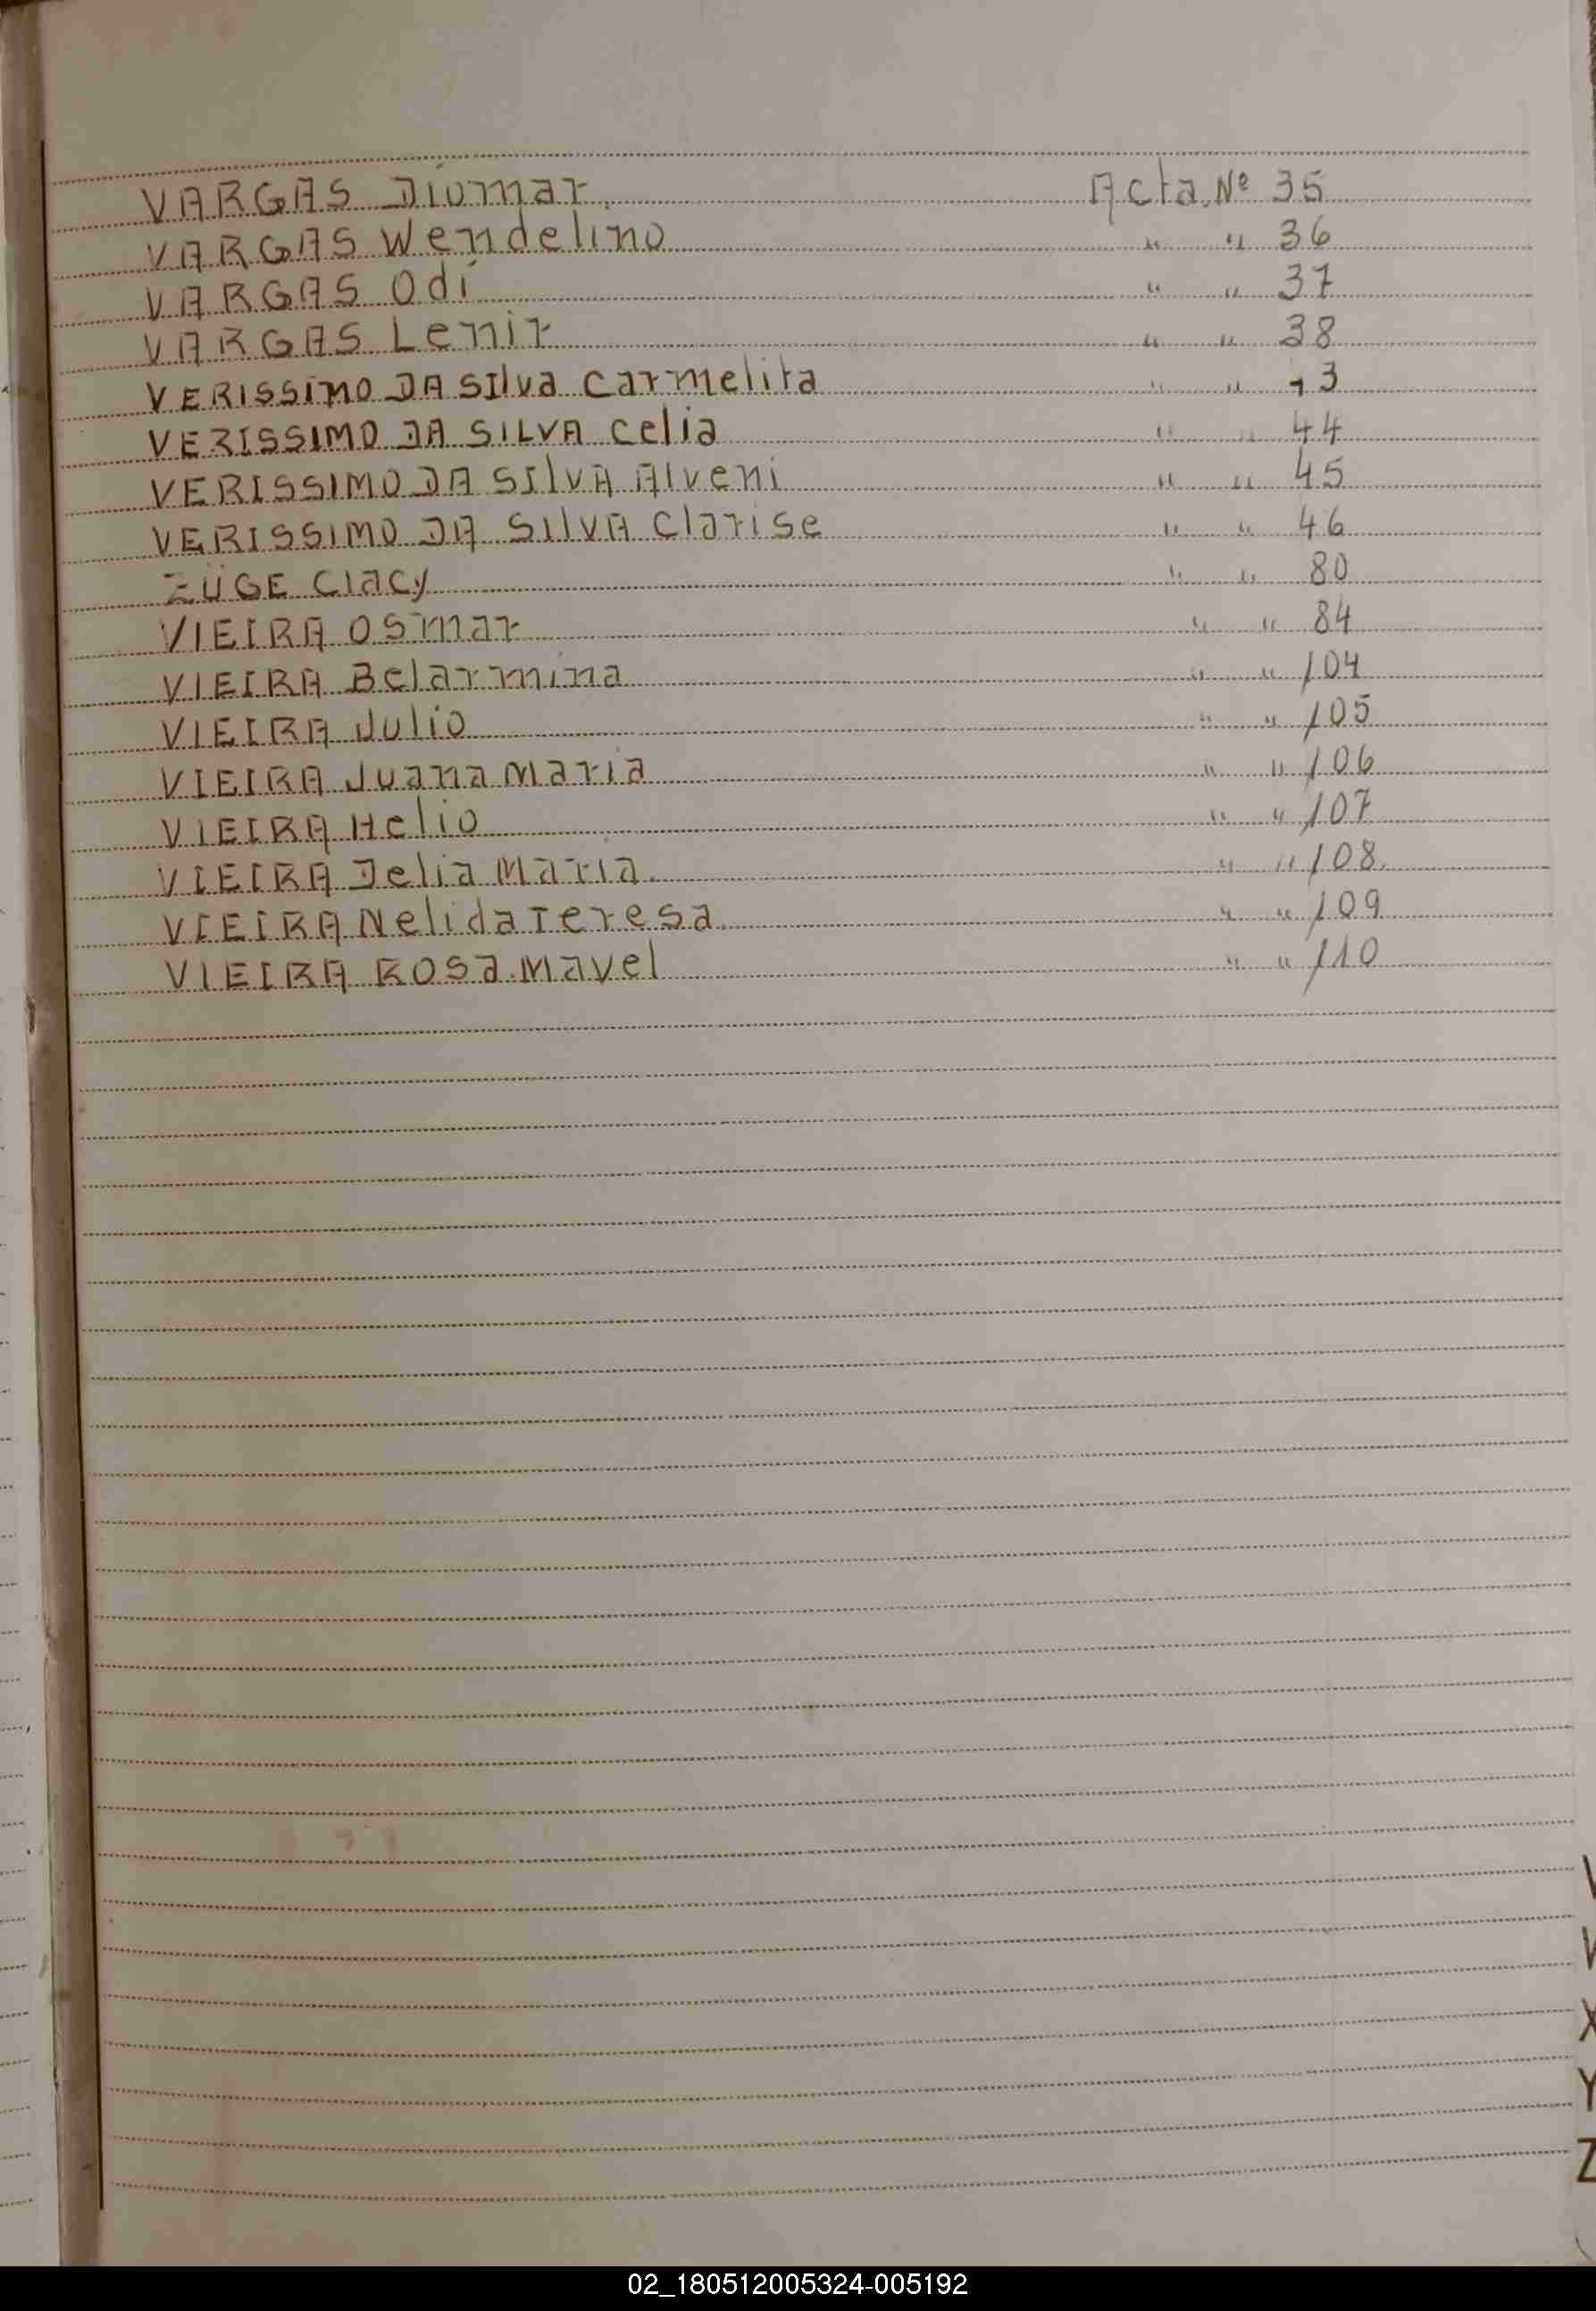 VARGAS Diomar. Acta. Nº 35
VARGAS Wendelino " " 36
VARGAS Odi " " 37
VARGAS Lenir " " 38
VERISSIMO DA SIlva Carmelita " " 43
VERISSIMO DA SILVA Celia " " 44
VERISSIMO DA SIlVA Alveni " " 45
VERISSIMO DA SIlVA Clarise " " 46
ZÜGE Clacy " " 80
VIEIRA Osmar " " 84
VIEIRA Belarmina " " 104
VIEIRA Julio " " 105
VIEIRA Juana Maria " " 106
VIEIRA Helio " " 107
VIEIRA Delia Maria. " " 108.
VIEIRA Nelida Teresa. " " 109
VIEIRA Rosa Mavel " " 110
V
W
X
Y
Z
02_180512005324-005192